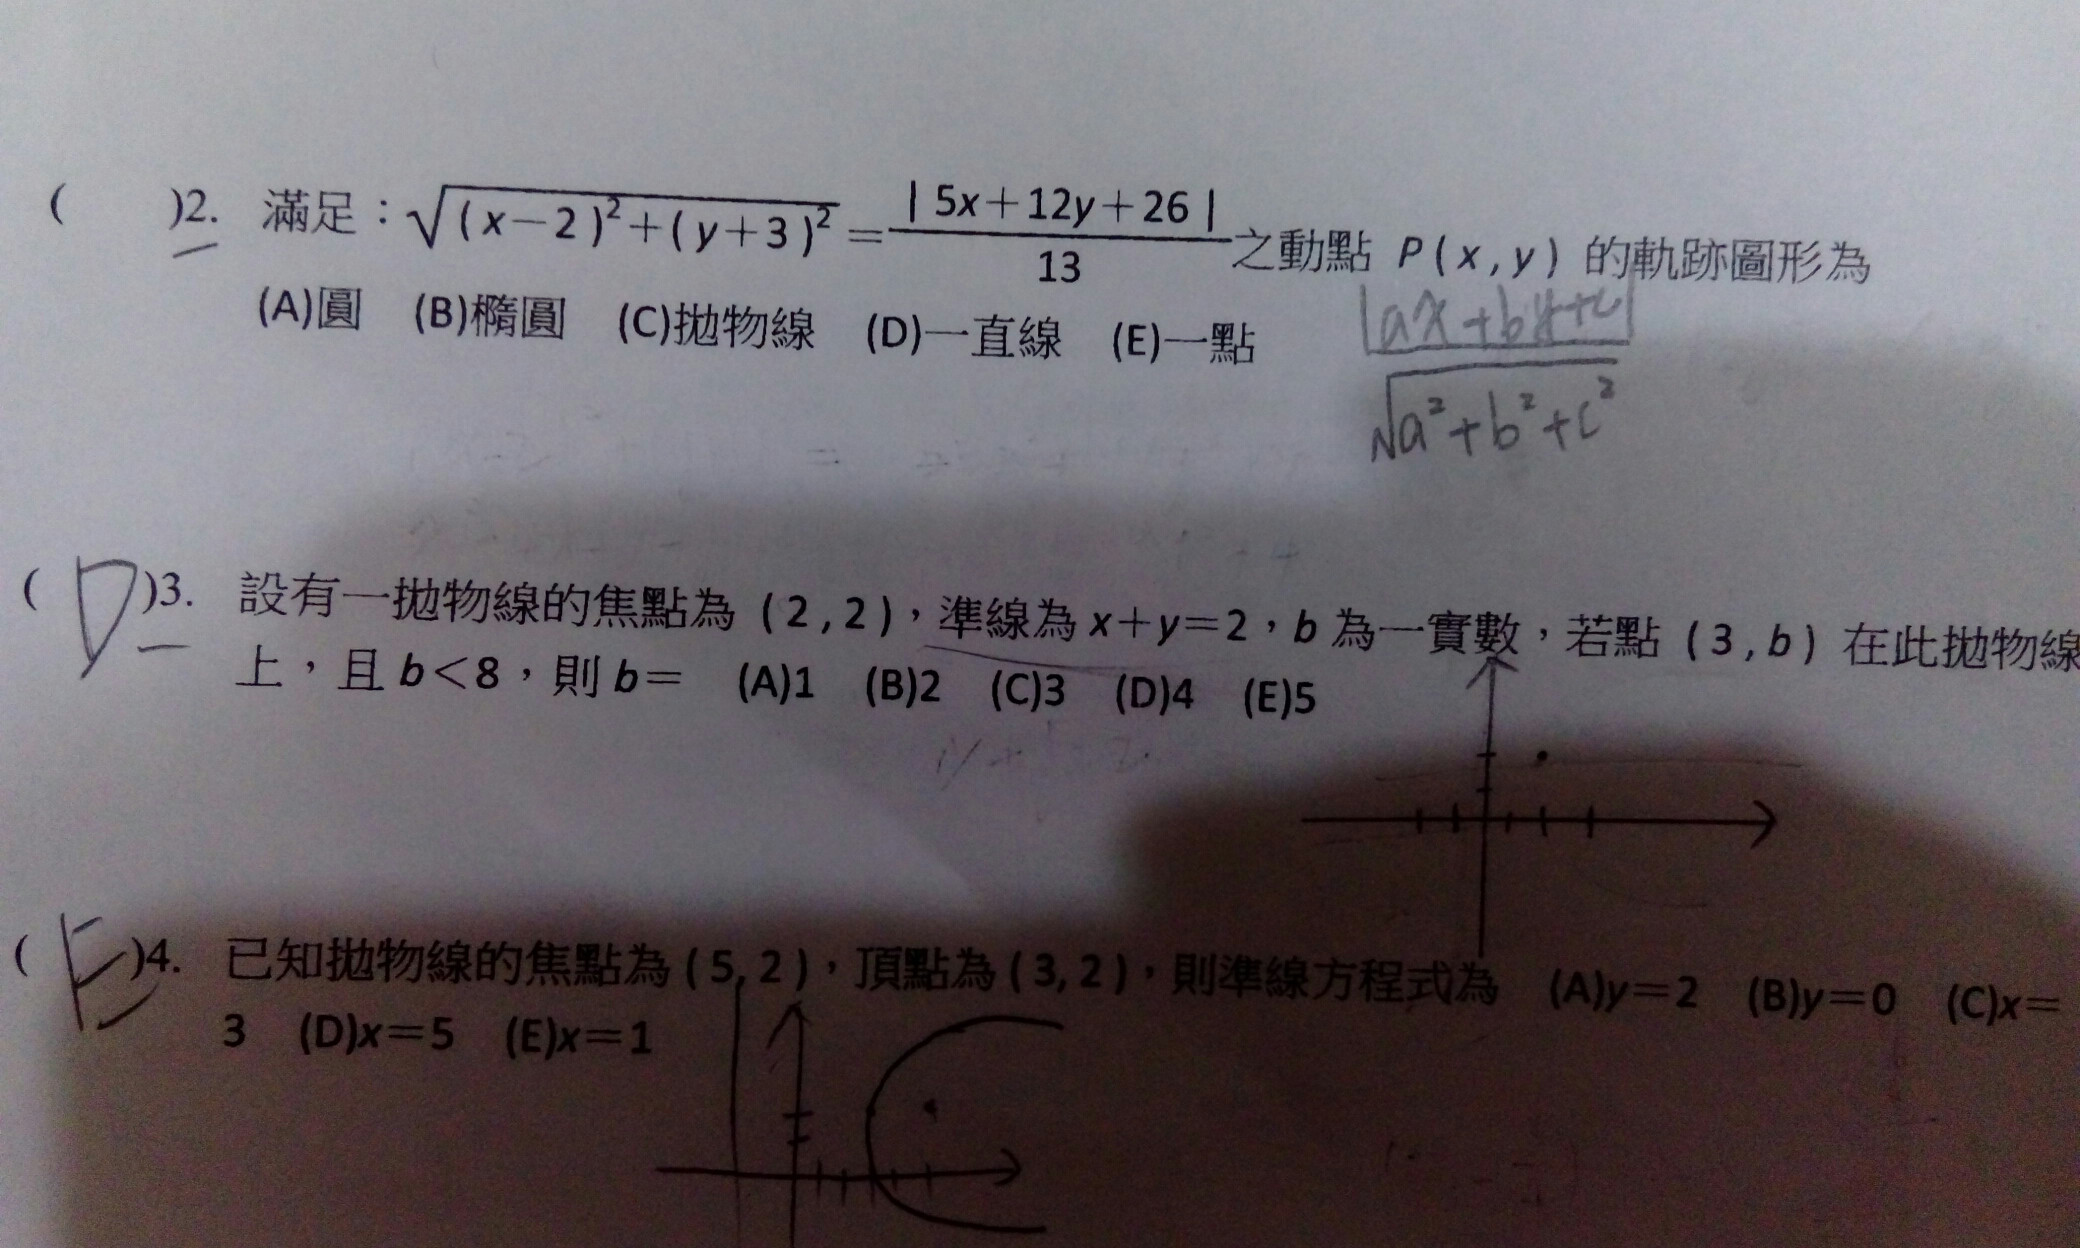 (　　)2. 滿足：√(x－2)²＋(y＋3)²＝|5x＋12y＋26|/13 之動點 P(x,y) 的軌跡圖形為
(A)圓 (B)橢圓 (C)拋物線 (D)一直線 (E)一點
|ax+by+c|
√a²+b²+c²
( D )3. 設有一拋物線的焦點為 (2,2)，準線為 x＋y＝2，b 為一實數，若點 (3,b) 在此拋物線
上，且 b＜8，則 b＝ (A)1 (B)2 (C)3 (D)4 (E)5
( E )4. 已知拋物線的焦點為 (5,2)，頂點為 (3,2)，則準線方程式為 (A)y＝2 (B)y＝0 (C)x＝
3 (D)x＝5 (E)x＝1